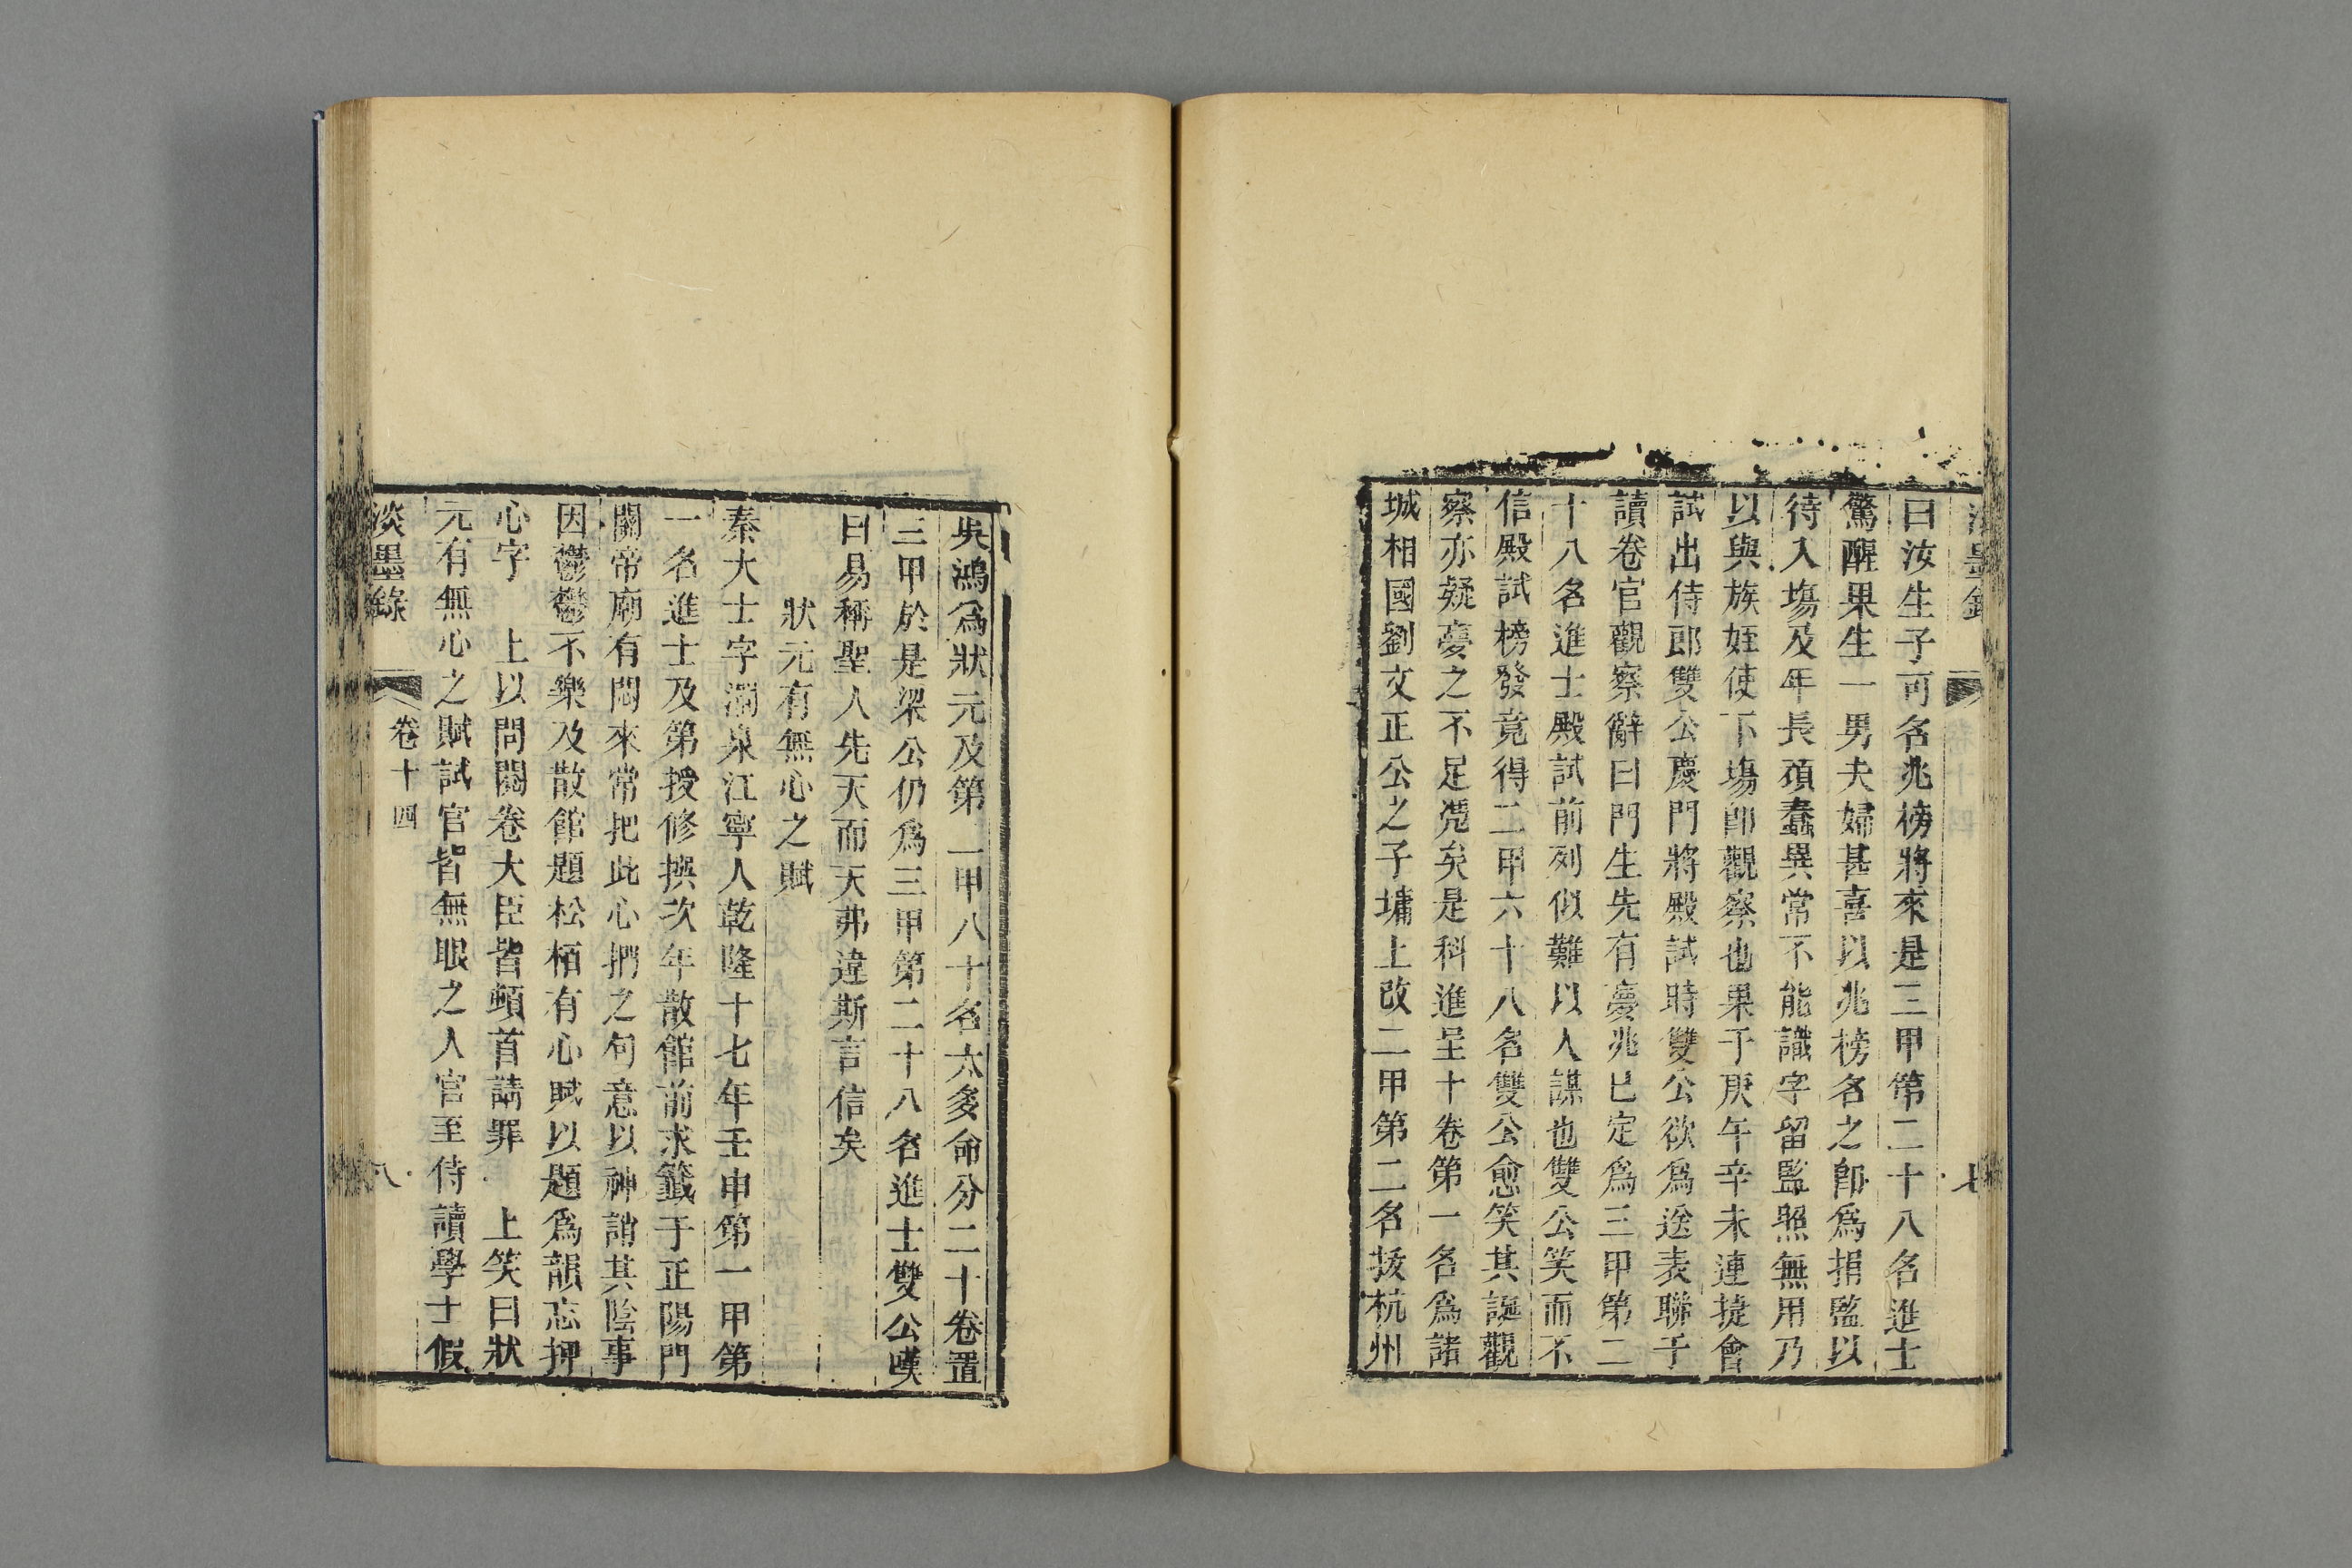 淡墨錄
七
曰汝生子可名兆榜將來是三甲第二十八名進士
驚醒果生一男夫婦甚喜以兆榜名之卽爲捐監以
待入塲及年長頑蠢異常不能識字留監照無用乃
以與族姪使下塲卽觀察也果于庚午辛未連捷會
試出侍郎雙公慶門將殿試時雙公欲爲送表聯于
讀卷官觀察辭曰門生先有夢兆已定爲三甲第二
十八名進士殿試前列似難以人謀也雙公笑而不
信殿試榜發竟得二甲六十八名雙公愈笑其誕觀
察亦疑夢之不足凴矣是科進呈十卷第一名爲諸
城相國劉文正公之子墉上改二甲第二名拔杭州
吳鴻爲狀元及第二甲八十名太多命分二十卷置
三甲於是梁公仍爲三甲第二十八名進士雙公嘆
曰易稱聖人先天而天弗違斯言信矣
狀元有無心之賦
秦大士字澗泉江寧人乾隆十七年壬申第一甲第
一名進士及第授修撰次年散館前求籤于正陽門
關帝廟有悶來常把此心捫之句意以神誚其陰事
因鬱鬱不樂及散館題松栢有心賦以題爲韻忘押
心字　上以問閱卷大臣皆頓首請罪　上笑曰狀
元有無心之賦試官皆無眼之人官至侍讀學士假
淡墨錄
卷十四
八